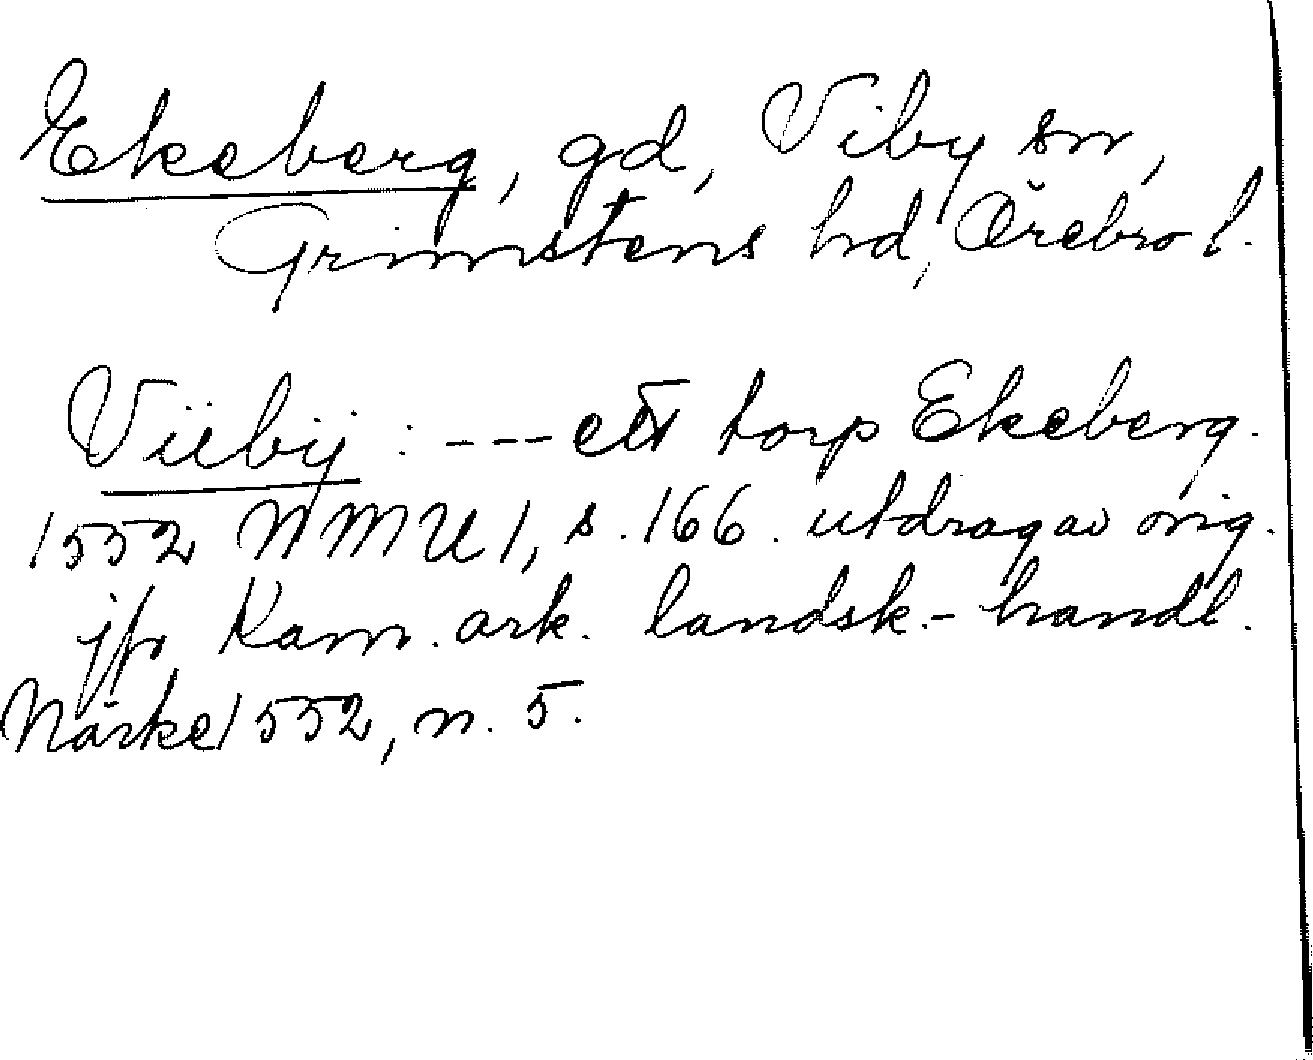 Ekeberg, gd, Viby sn,
Grimstens hd, Örebro l.
Viibij : --- ett torp Ekeberg.
1552 NMU 1, s. 166. utdrag av orig.
jfr Kam. ark. landsk.- handl.
Närke 1552, n. 5.